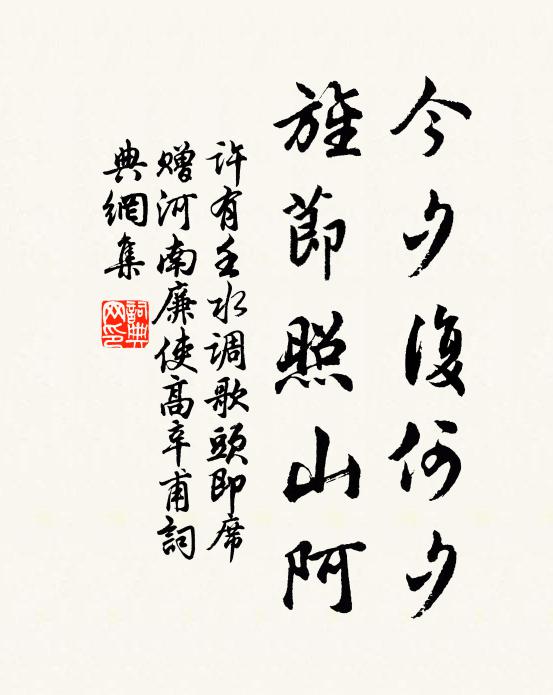 今夕復何夕
旌節照山阿
許有壬水調歌頭即席
贈河南廉使高辛甫詞
典網集
詞典網印